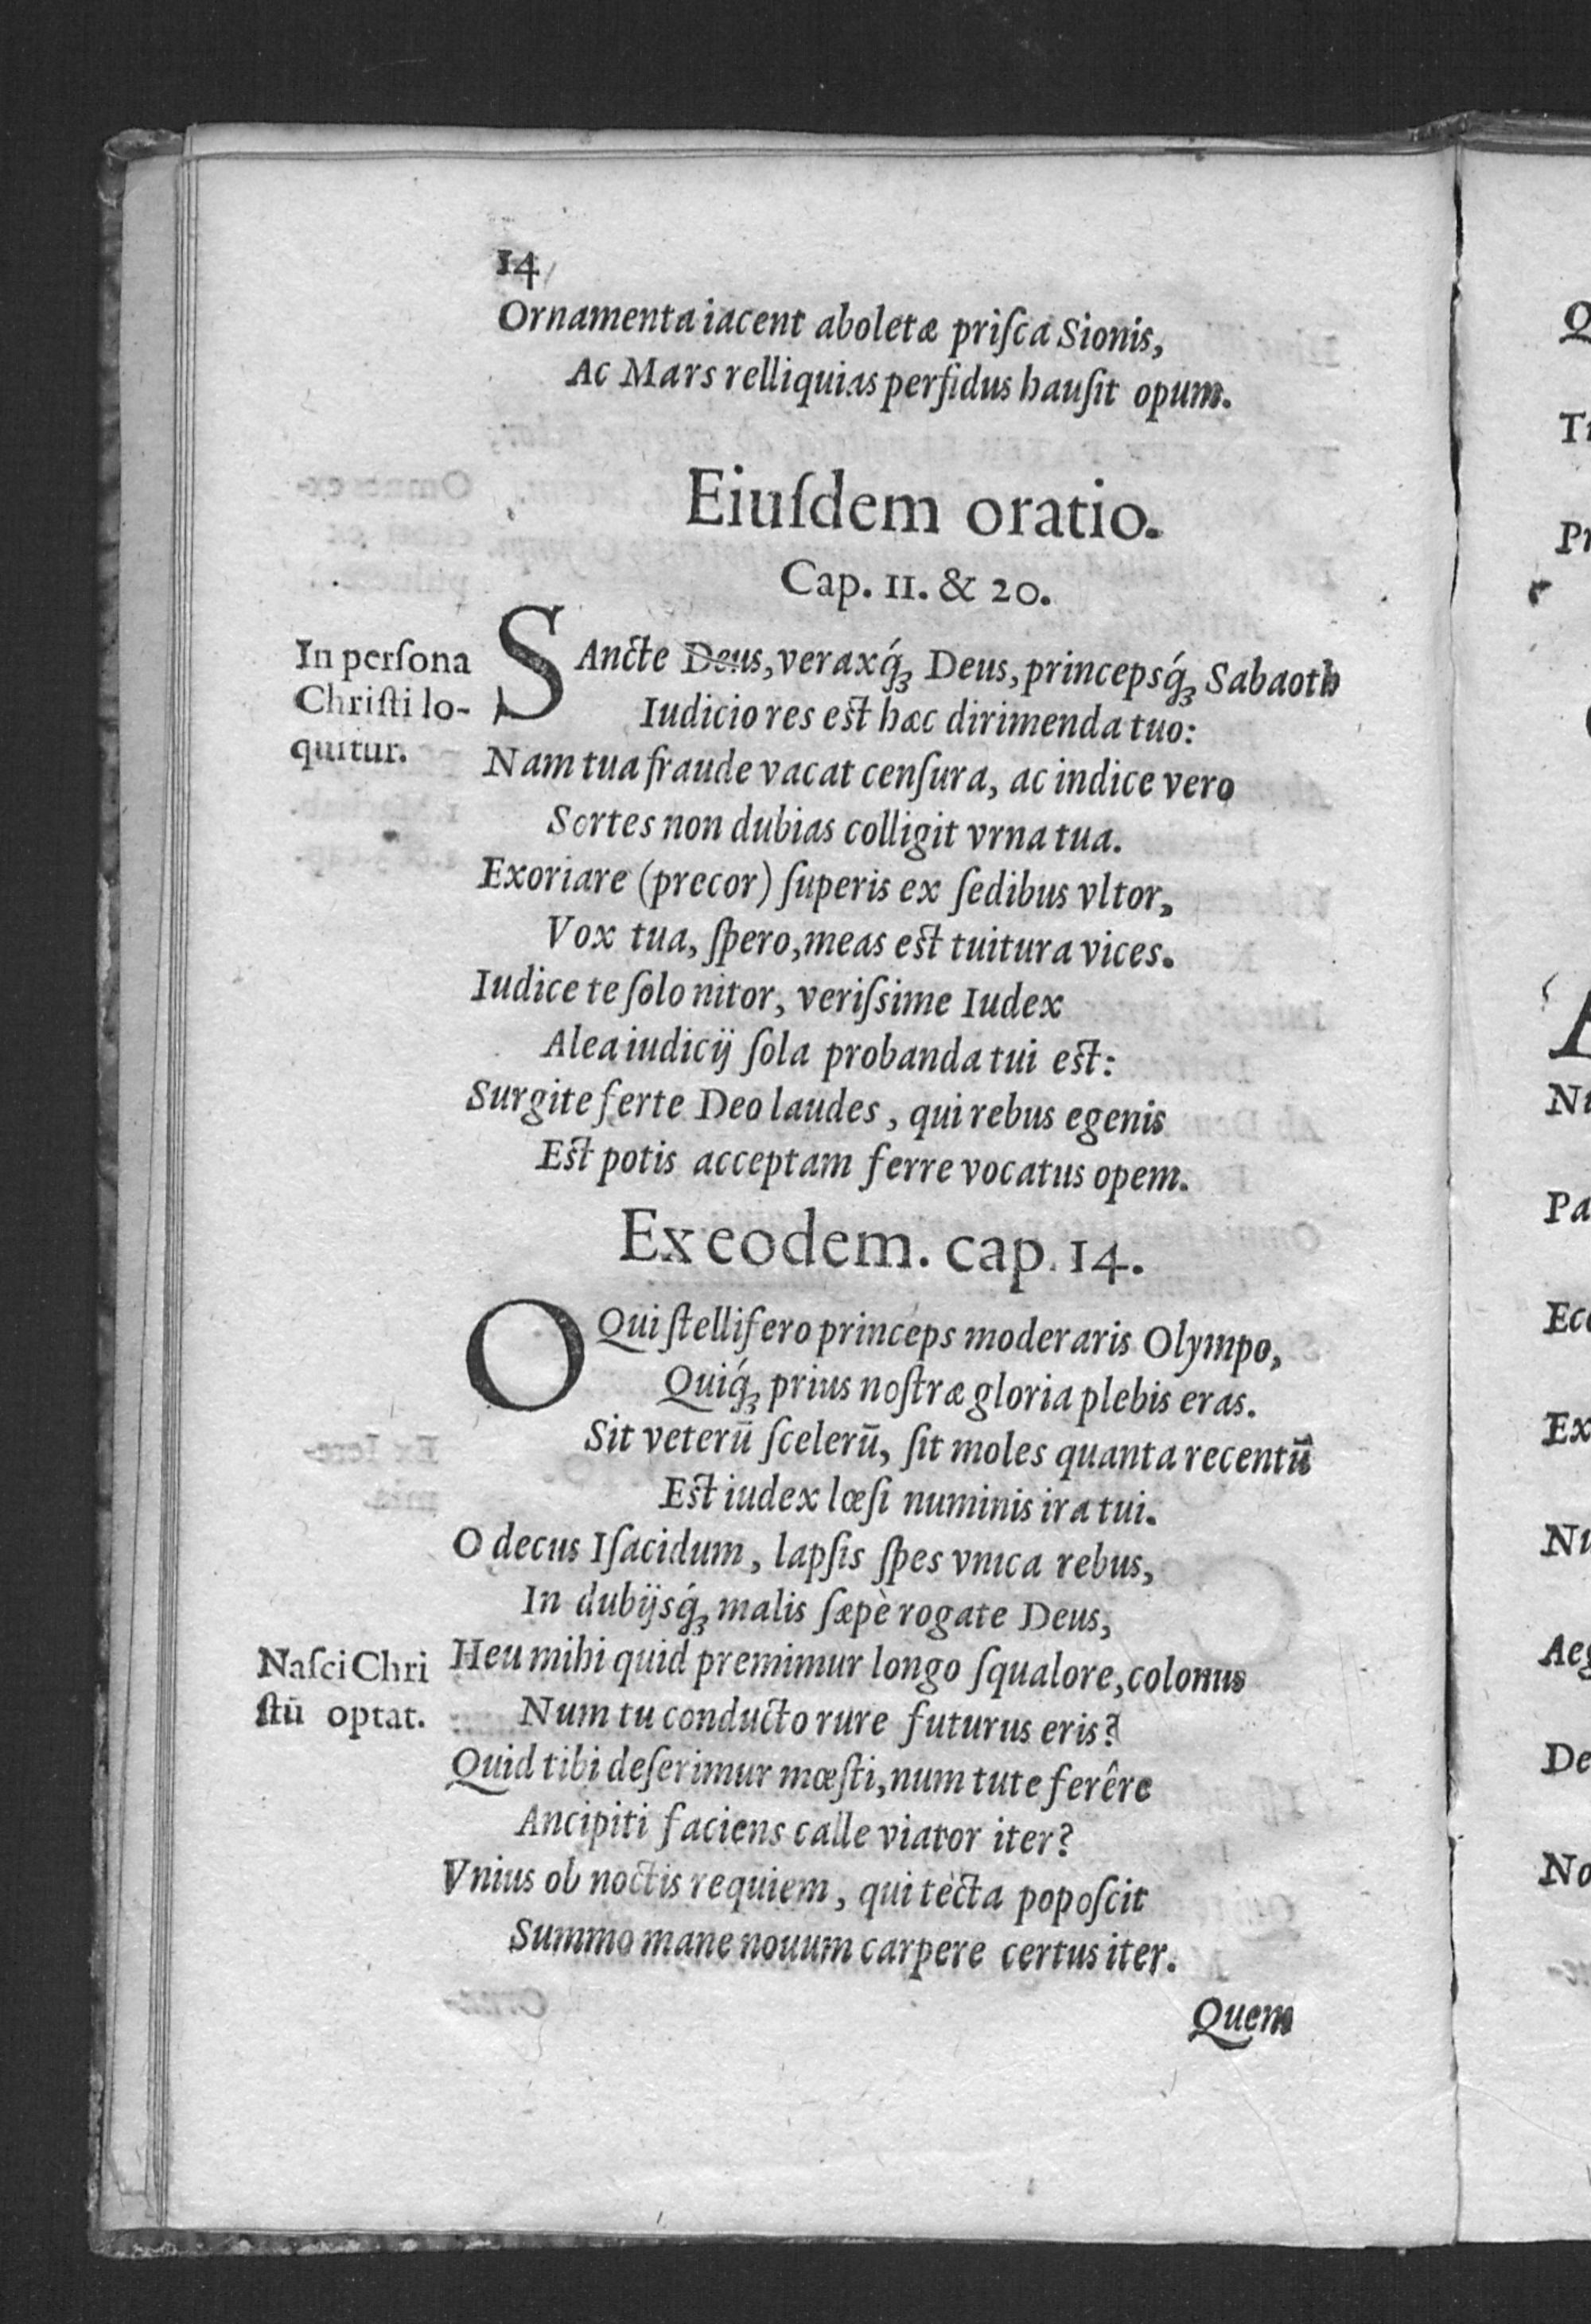 14
Ornamenta iacent aboletæ priſca Sionis,
Ac Mars relliquias perfidus hauſit opum.
Eiuſdem oratio.
Cap. 11. & 20.
In perſona
Chriſti lo-
quitur.
SAncte Deus, veraxq́ꝫ Deus, princepsq́ꝫ Sabaoth
Iudicio res est hæc dirimenda tuo:
Nam tua fraude vacat cenſura, ac indice vero
Sortes non dubias colligit vrna tua.
Exoriare (precor) ſuperis ex ſedibus vltor,
Vox tua, ſpero, meas est tuitura vices.
Iudice te ſolo nitor, veriſsime Iudex
Alea iudicij ſola probanda tui est:
Surgite ferte Deo laudes, qui rebus egenis
Est potis acceptam ferre vocatus opem.
Ex eodem. cap. 14.
O Qui ſtellifero princeps moderaris Olympo,
Quiq́ꝫ prius noſtræ gloria plebis eras.
Sit veterū ſcelerū, ſit moles quanta recentū
Est iudex lœſi numinis ira tui.
O decus Iſacidum, lapſis ſpes vnica rebus,
In dubijsq́ꝫ malis ſæpè rogate Deus,
Naſci Chri
ſtū optat.
Heu mihi quid premimur longo ſqualore, colonus
Num tu conducto rure futurus eris?
Quid tibi deſerimur mœſti, num tute ferêre
Ancipiti faciens calle viator iter?
Vnius ob noctis requiem, qui tecta popoſcit
Summo mane nouum carpere certus iter.
Quem
Q
Ti
Pr
A
Nu
Pa
Ecc
Ex
Nu
Aeg
De
No